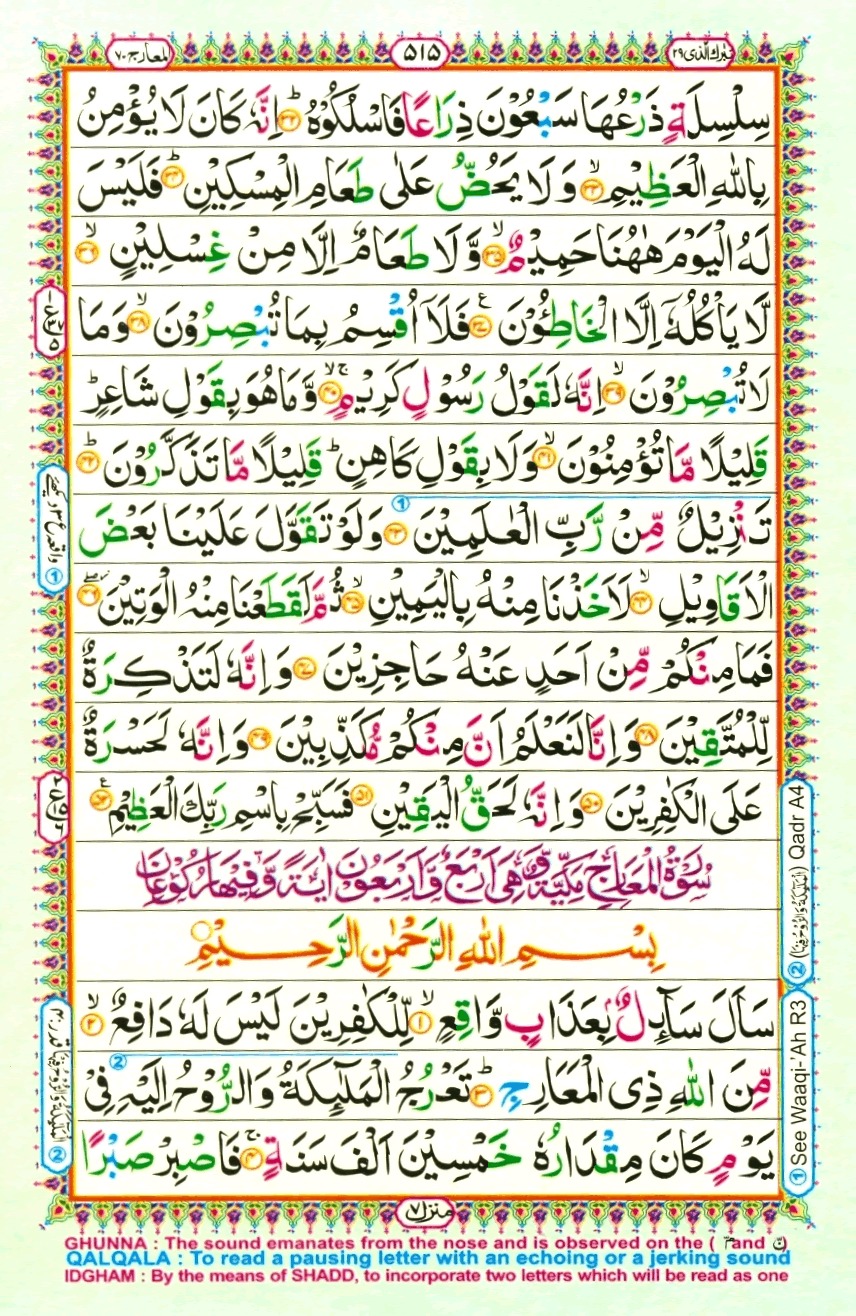 تبرك الذى ٢٩
٥١٥
المعارج ٧٠
سِلْسِلَةٍ ذَرْعُهَا سَبْعُوْنَ ذِرَاعًا فَاسْلُكُوْهُ ؕ﴿۳۲﴾ اِنَّهٗ كَانَ لَا يُؤْمِنُ
بِاللّٰهِ الْعَظِيْمِ ۙ﴿۳۳﴾ وَ لَا يَحُضُّ عَلٰى طَعَامِ الْمِسْكِيْنِ ؕ﴿۳۴﴾ فَلَيْسَ
لَهُ الْيَوْمَ هٰهُنَا حَمِيْمٌ ۙ﴿۳۵﴾ وَّ لَا طَعَامٌ اِلَّا مِنْ غِسْلِيْنٍ ۙ﴿۳۶﴾
لَّا يَاْكُلُهٗۤ اِلَّا الْخَاطِـُٔوْنَ ﴿۳۷﴾ۧ فَلَاۤ اُقْسِمُ بِمَا تُبْصِرُوْنَ ۙ﴿۳۸﴾ وَ مَا
لَا تُبْصِرُوْنَ ۙ﴿۳۹﴾ اِنَّهٗ لَقَوْلُ رَسُوْلٍ كَرِيْمٍ ۚۙ﴿۴۰﴾ وَّ مَا هُوَ بِقَوْلِ شَاعِرٍ ؕ
قَلِيْلًا مَّا تُؤْمِنُوْنَ ۙ﴿۴۱﴾ وَ لَا بِقَوْلِ كَاهِنٍ ؕ قَلِيْلًا مَّا تَذَكَّرُوْنَ ؕ﴿۴۲﴾
تَنْزِيْلٌ مِّنْ رَّبِّ الْعٰلَمِيْنَ ﴿۴۳﴾ ① وَ لَوْ تَقَوَّلَ عَلَيْنَا بَعْضَ
الْاَقَاوِيْلِ ۙ﴿۴۴﴾ لَاَخَذْنَا مِنْهُ بِالْيَمِيْنِ ۙ﴿۴۵﴾ ثُمَّ لَقَطَعْنَا مِنْهُ الْوَتِيْنَ ﴿۴۶﴾
فَمَا مِنْكُمْ مِّنْ اَحَدٍ عَنْهُ حَاجِزِيْنَ ﴿۴۷﴾ وَ اِنَّهٗ لَتَذْكِرَةٌ
لِّلْمُتَّقِيْنَ ﴿۴۸﴾ وَ اِنَّا لَنَعْلَمُ اَنَّ مِنْكُمْ مُّكَذِّبِيْنَ ﴿۴۹﴾ وَ اِنَّهٗ لَحَسْرَةٌ
عَلَى الْكٰفِرِيْنَ ﴿۵۰﴾ وَ اِنَّهٗ لَحَقُّ الْيَقِيْنِ ﴿۵۱﴾ فَسَبِّحْ بِاسْمِ رَبِّكَ الْعَظِيْمِ ﴿۵۲﴾ۧ
سُوْرَةُ الْمَعَارِجِ مَكِّيَّةٌ وَّهِىَ اَرْبَعٌ وَّ اَرْبَعُوْنَ اٰيَةً وَّ فِيْهَا رُكُوْعَانِ
بِسْمِ اللّٰهِ الرَّحْمٰنِ الرَّحِيْمِ
سَاَلَ سَآئِلٌۢ بِعَذَابٍ وَّاقِعٍ ۙ﴿۱﴾ لِّلْكٰفِرِيْنَ لَيْسَ لَهٗ دَافِعٌ ۙ﴿۲﴾
مِّنَ اللّٰهِ ذِى الْمَعَارِجِ ؕ﴿۳﴾ ② تَعْرُجُ الْمَلٰٓئِكَةُ وَ الرُّوْحُ اِلَيْهِ فِىْ
يَوْمٍ كَانَ مِقْدَارُهٗ خَمْسِيْنَ اَلْفَ سَنَةٍ ۚ﴿۴﴾ فَاصْبِرْ صَبْرًا
② (الْمَلٰٓئِكَةُ وَالرُّوْحُ فِيْهَا) Qadr A4
① See Waaqi-'Ah R3
منزل ٧
GHUNNA : The sound emanates from the nose and is observed on the ( مّ and نّ)
QALQALA : To read a pausing letter with an echoing or a jerking sound
IDGHAM : By the means of SHADD, to incorporate two letters which will be read as one